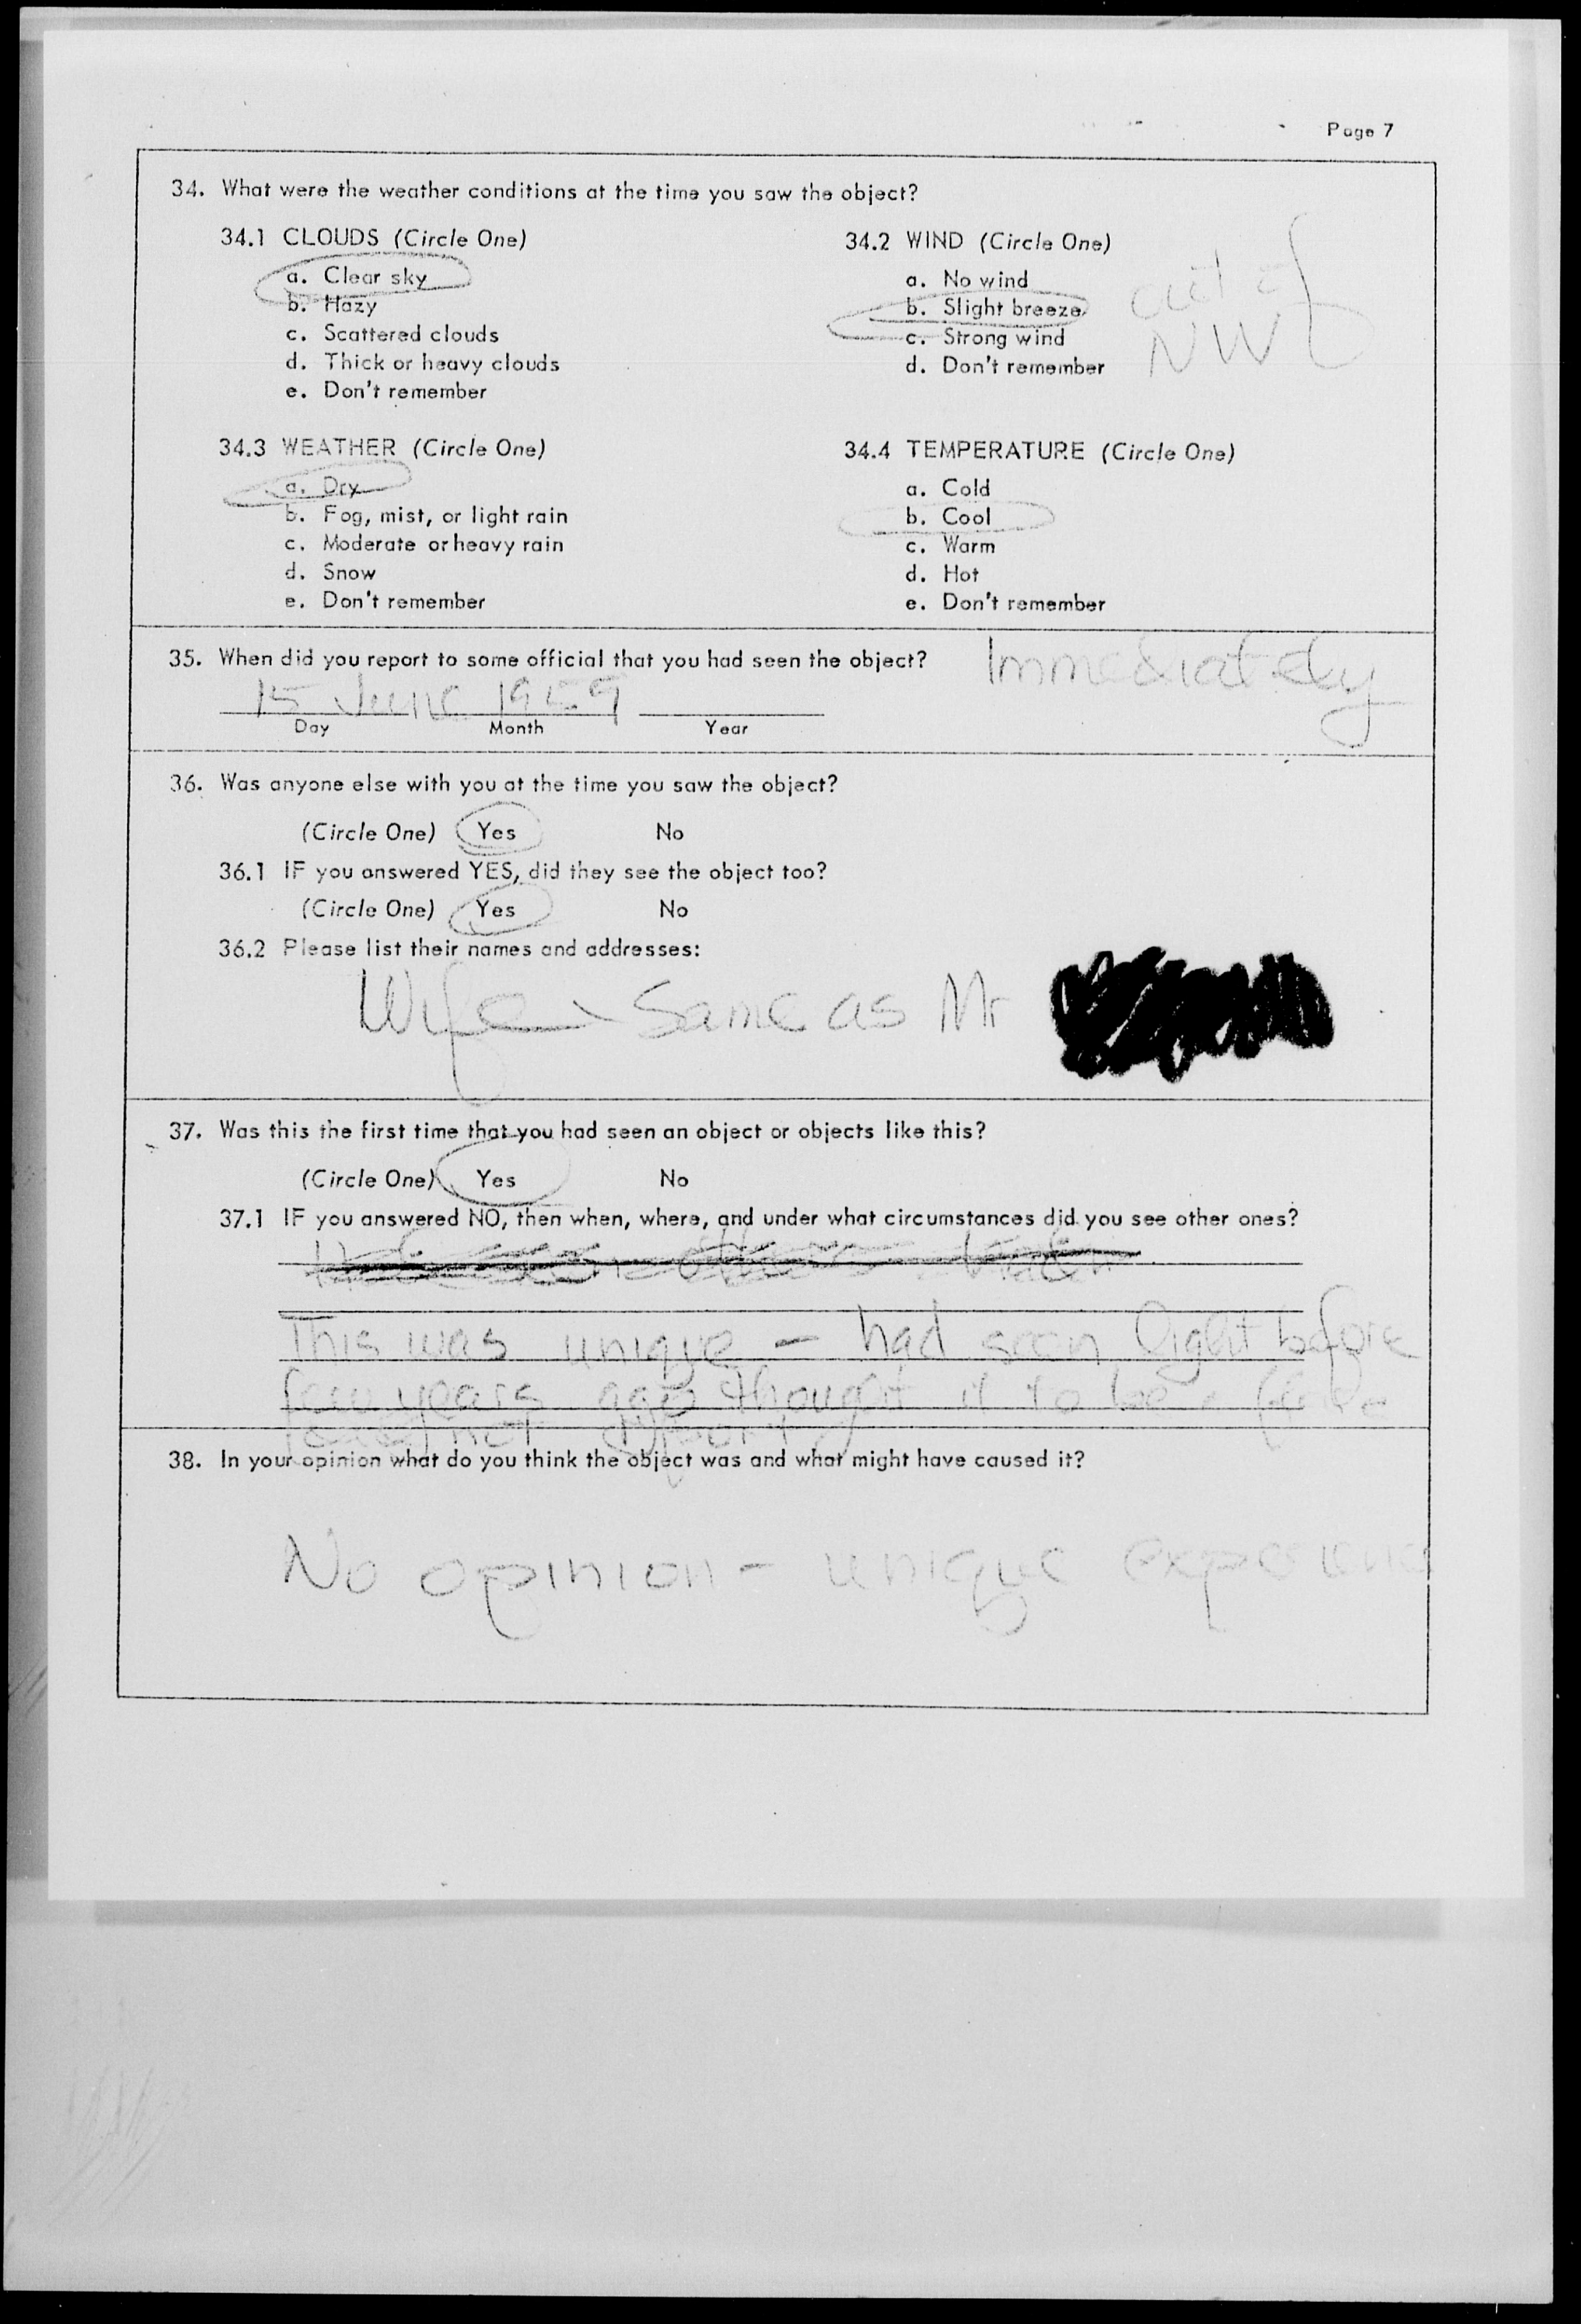 Page 7
34. What were the weather conditions at the time you saw the object?
34.1 CLOUDS (Circle One)
a. Clear sky
b. Hazy
c. Scattered clouds
d. Thick or heavy clouds
e. Don't remember
34.2 WIND (Circle One)
a. No wind
b. Slight breeze
c. Strong wind
d. Don't remember
out of
NW
34.3 WEATHER (Circle One)
a. Dry
b. Fog, mist, or light rain
c. Moderate or heavy rain
d. Snow
e. Don't remember
34.4 TEMPERATURE (Circle One)
a. Cold
b. Cool
c. Warm
d. Hot
e. Don't remember
35. When did you report to some official that you had seen the object? Immediately
15 June 1959
Day Month Year
36. Was anyone else with you at the time you saw the object?
(Circle One) Yes No
36.1 IF you answered YES, did they see the object too?
(Circle One) Yes No
36.2 Please list their names and addresses:
Wife - Same as Mr
37. Was this the first time that you had seen an object or objects like this?
(Circle One) Yes No
37.1 IF you answered NO, then when, where, and under what circumstances did you see other ones?
This was unique - had seen light before
few years ago thought it to be
not
38. In your opinion what do you think the object was and what might have caused it?
No opinion - unique experience